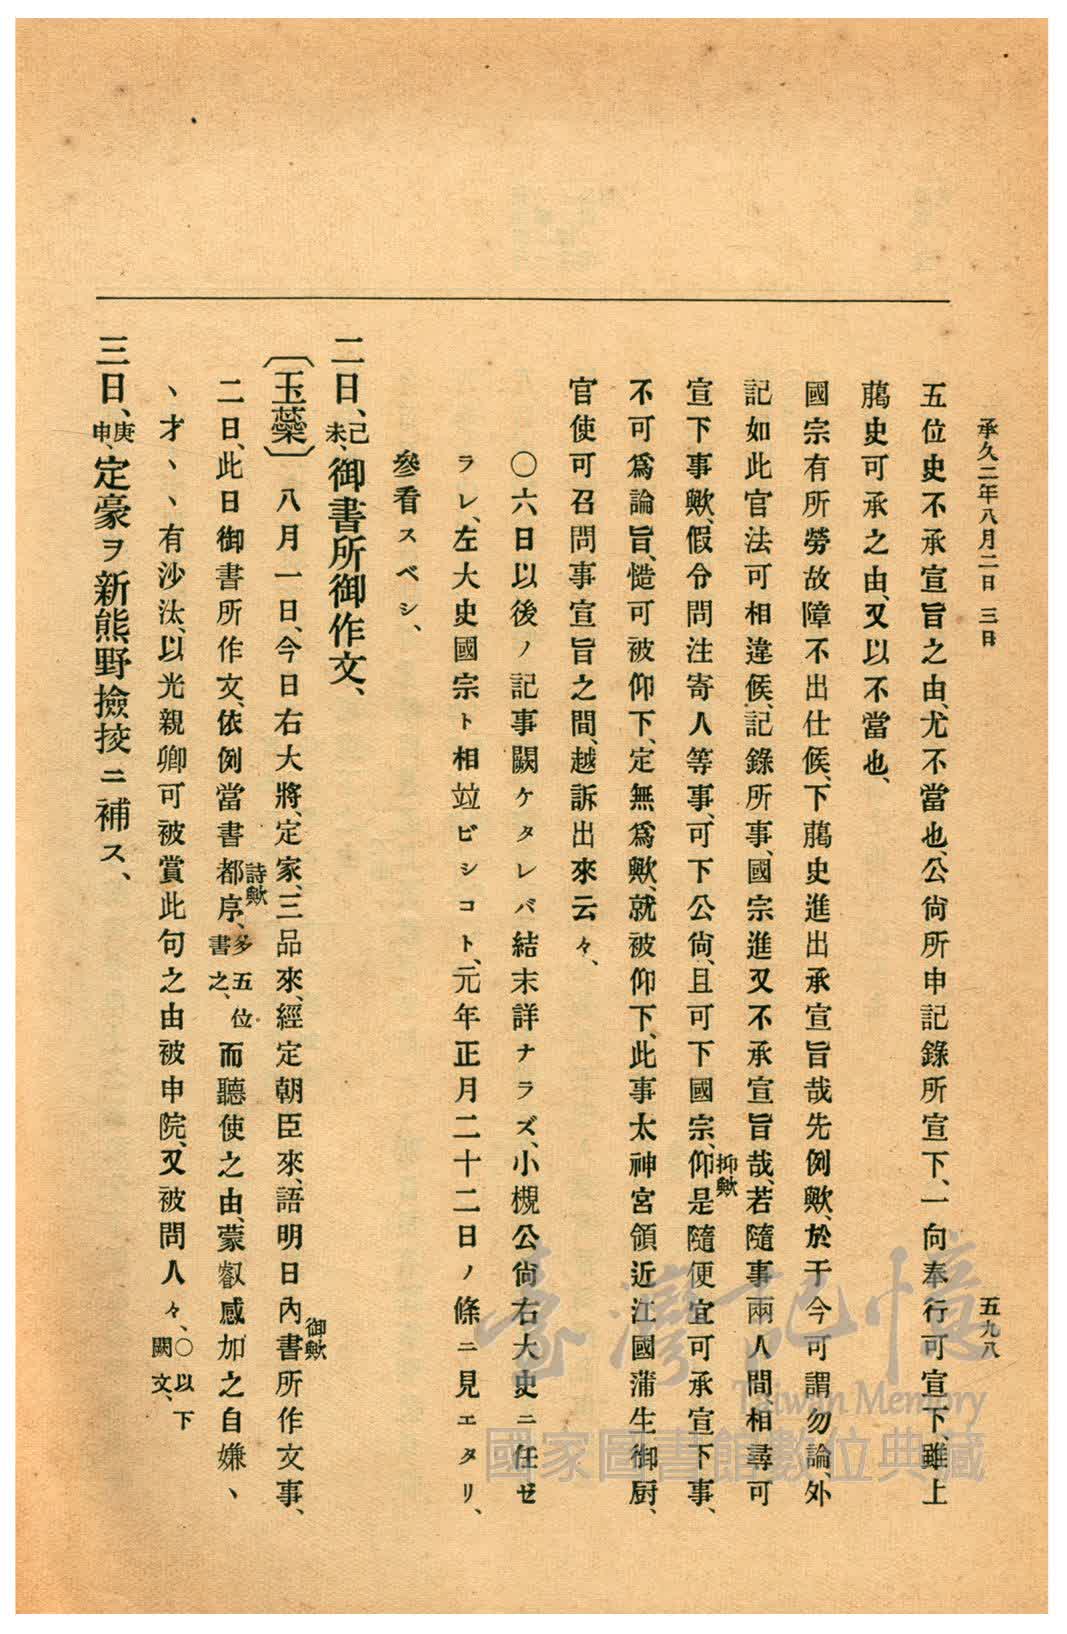 承久二年八月二日 三日
五九八
五位史不承宣旨之由、尤不當也、公尙所申記錄所宣下、一向奉行可宣下、雖上
﨟史可承之由、又以不當也、
國宗有所勞故障不出仕候、下﨟史進出承宣旨哉先例歟、於于今可謂勿論、外
記如此官法可相違候、記錄所事、國宗進又不承宣旨哉、若隨事兩人間相尋可
宣下事歟、假令問注寄人等事、可下公尙、且可下國宗、仰是隨便宜可承宣下事、
抑歟
不可爲論旨、慥可被仰下、定無爲歟、就被仰下、此事太神宮領近江國蒲生御厨、
官使可召問事宣旨之間、越訴出來云々、
〇六日以後ノ記事闕ケタレバ結末詳ナラズ、小槻公尙右大史ニ任ゼ
ラレ、左大史國宗ト相竝ビシコト、元年正月二十二日ノ條ニ見エタリ、
參看スベシ、
二日、己未、御書所御作文、
〔玉蘂〕 八月一日、今日右大將、定家、三品來、經定朝臣來、語明日內書所作文事、
御歟
二日、此日御書所作文、依例當書都序、多五位書之、而聽使之由、蒙叡感加之自嫌、
詩歟
丶才丶丶有沙汰、以光親卿可被賞此句之由被申院、又被問人々、〇以下闕文、
三日、庚申、定豪ヲ新熊野撿挍ニ補ス、
臺灣記憶
Taiwan Memory
國家圖書館數位典藏